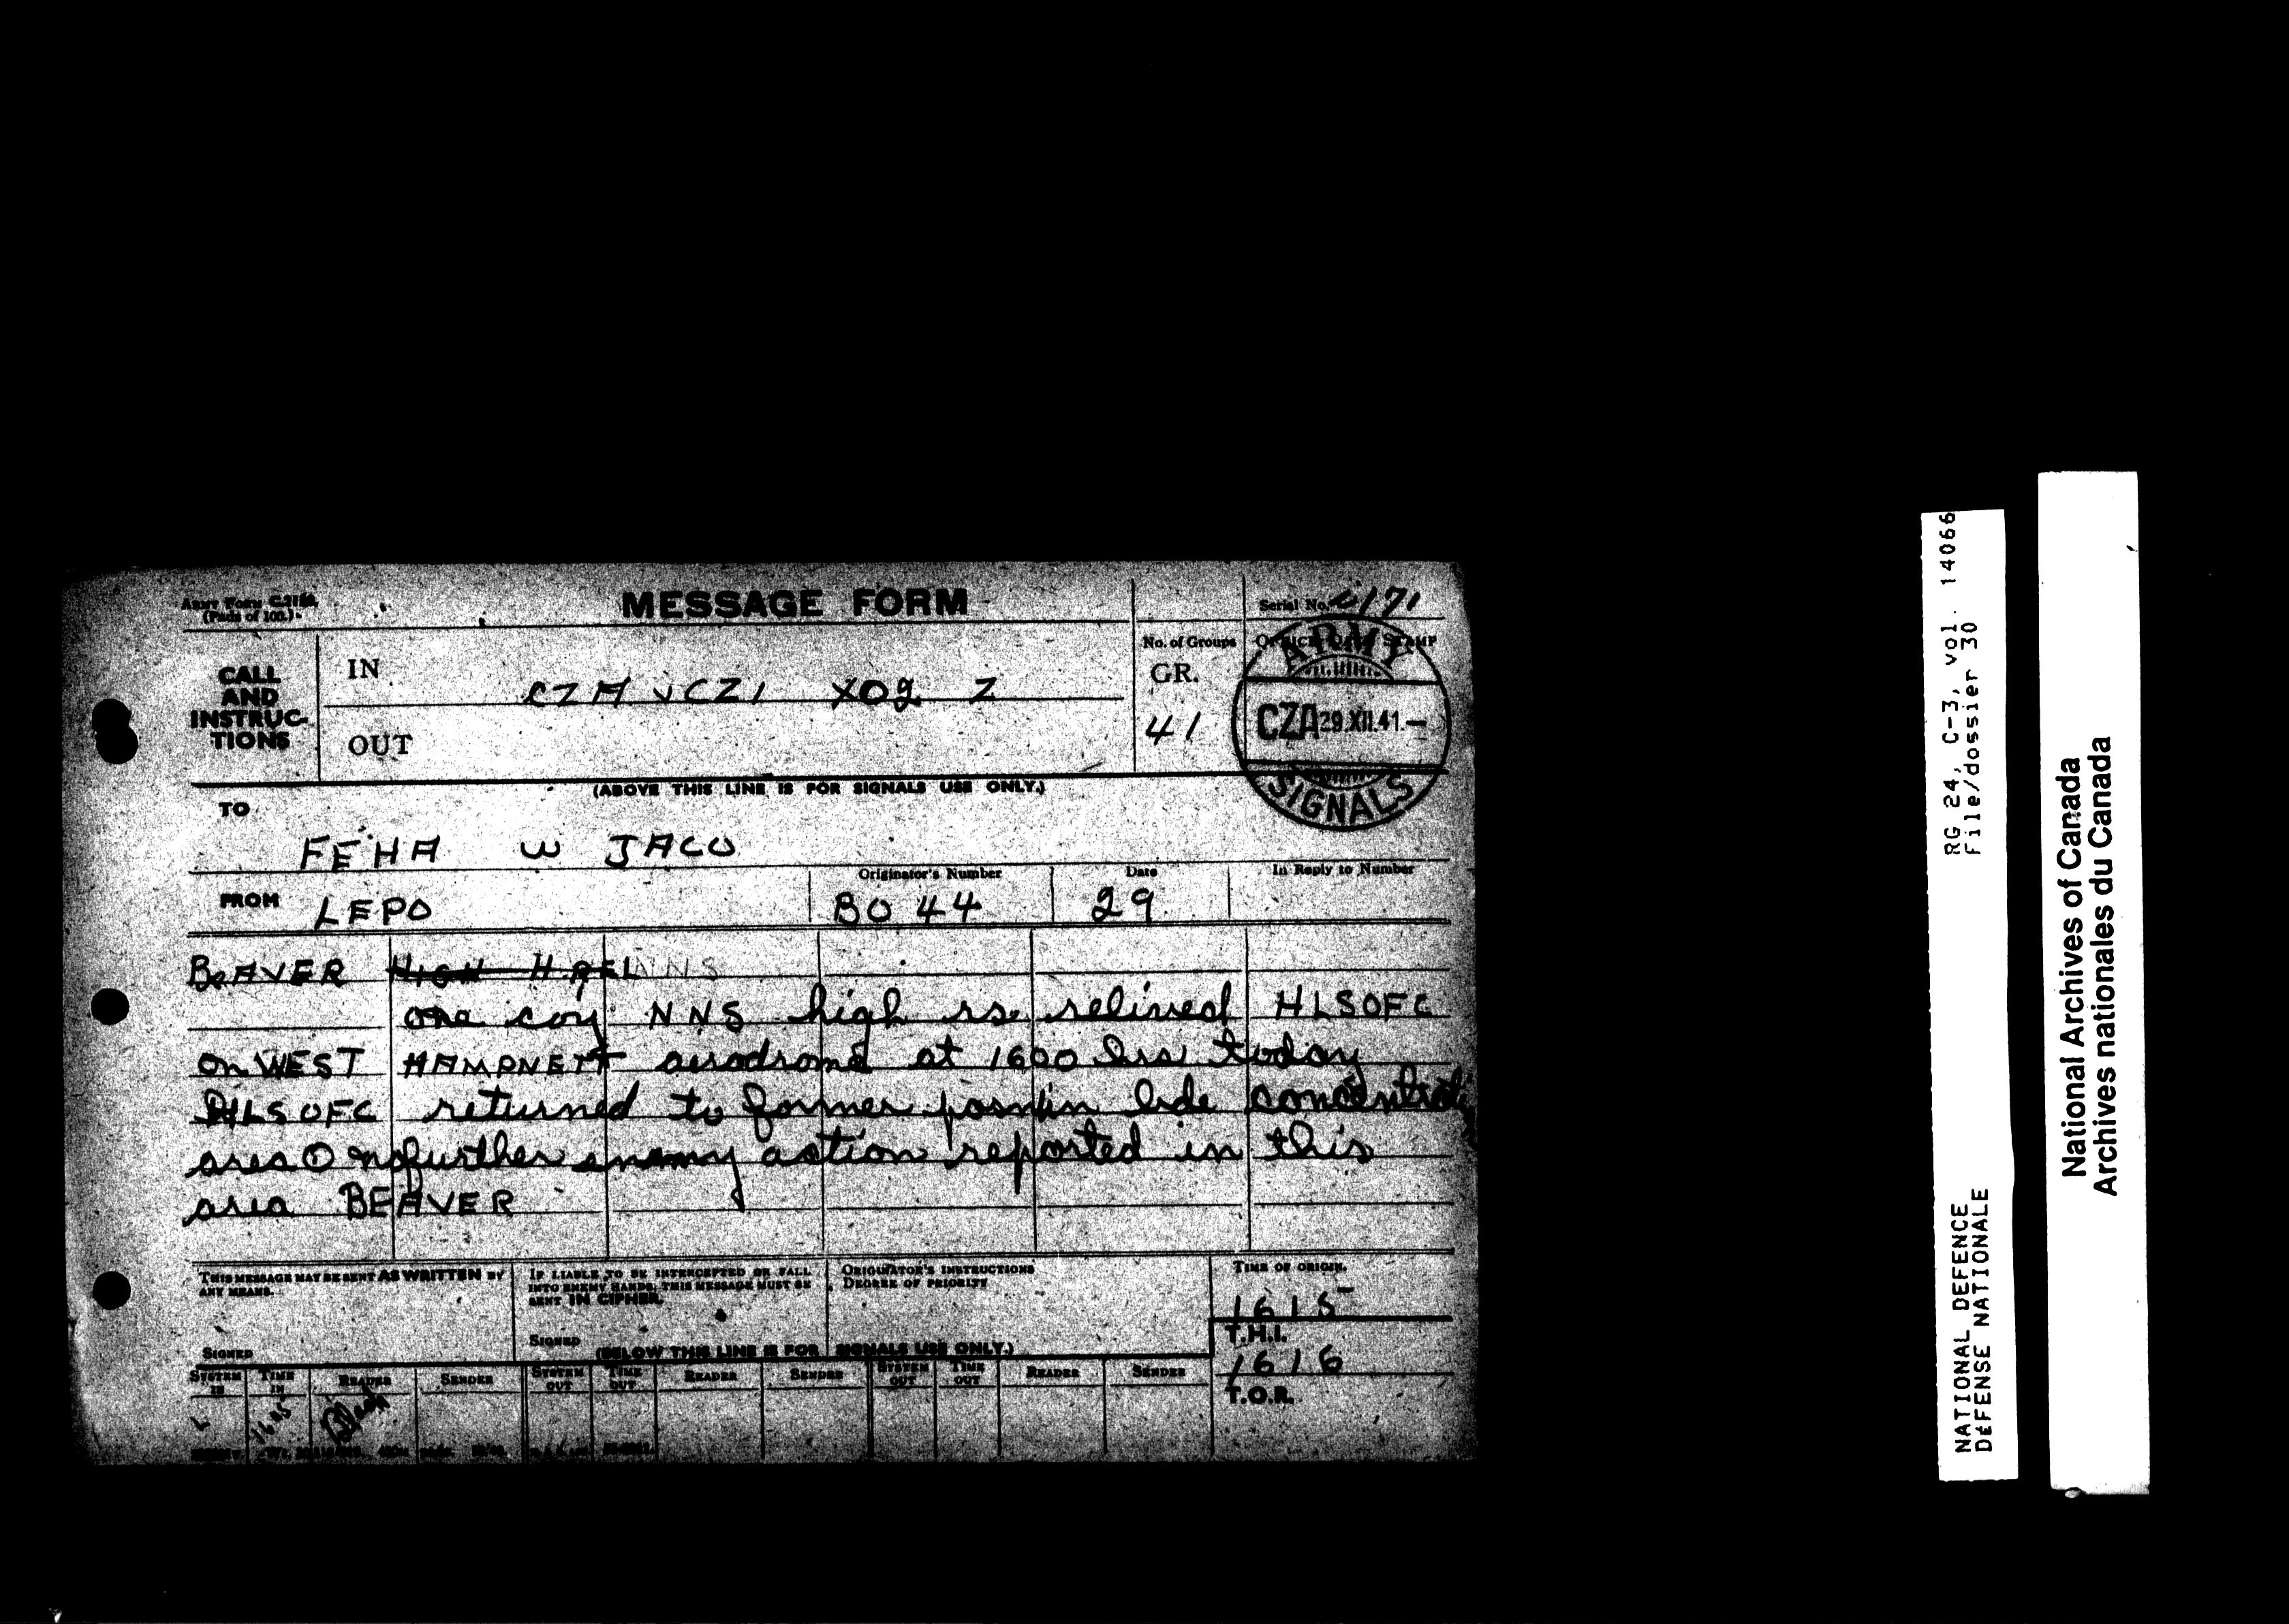 Army Form C.2128
(Pads of 100.)
MESSAGE FORM
Serial No. 171
CALL AND INSTRUC-TIONS
IN
CZA v CZ1 XOG Z
OUT
No. of Groups
GR.
41
OFFICE DATE STAMP
ARMY
CZA 29.XII.41.—
SIGNALS
(ABOVE THIS LINE IS FOR SIGNALS USE ONLY.)
TO
FEHA W JACO
FROM LEPO
Originator's Number
BO 44
Date
29
In Reply to Number
BEAVER NNS
one coy NNS high rs relieved HLSOFC
on WEST HAMPNETT aerodrome at 1600 hrs today
HLSOFC returned to former position bde concentrat
area ① no further enemy action reported in this
area BEAVER
THIS MESSAGE MAY BE SENT AS WRITTEN BY ANY MEANS.
SIGNED
IF LIABLE TO BE INTERCEPTED OR FALL INTO ENEMY HANDS, THIS MESSAGE MUST BE SENT IN CIPHER.
SIGNED
ORIGINATOR'S INSTRUCTIONS
DEGREE OF PRIORITY
TIME OF ORIGIN.
1615
T.H.I.
1616
T.O.R.
(BELOW THIS LINE IS FOR SIGNALS USE ONLY.)
SYSTEM IN TIME IN READER SENDER SYSTEM OUT TIME OUT READER SENDER SYSTEM OUT TIME OUT READER SENDER
L
RG 24, C-3, vol. 14066
File/dossier 30
NATIONAL DEFENCE
DÉFENSE NATIONALE
National Archives of Canada
Archives nationales du Canada